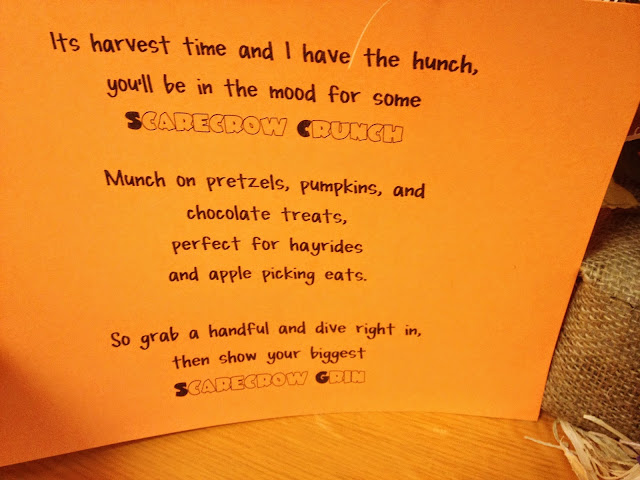 Its harvest time and I have the hunch,
you'll be in the mood for some
SCARECROW CRUNCH
Munch on pretzels, pumpkins, and
chocolate treats,
perfect for hayrides
and apple picking eats.
So grab a handful and dive right in,
then show your biggest
SCARECROW GRIN